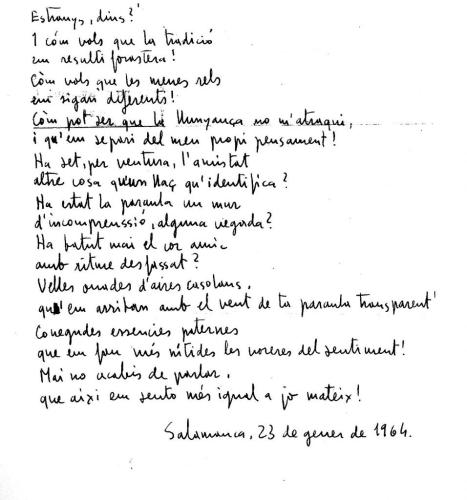 Estranys, dius?
I cóm vols que la tradició
em resulti forastera!
Còm vols que les meves rels
em sigan diferents!
Còm pot ser que la llunyança no m'atraqui,
i qu'em separi del meu propi pensament!
Ha set, per ventura, l'amistat
altre cosa qu'eun llaç qu'identifica?
Ha estat la paraula un mur
d'incomprenssió, alguna vegada?
Ha batut mai el cor amic
amb ritme desfassat?
Velles onades d'aires casolans,
qu'em arriban amb el vent de ta paraula transparent!
Conegudes essencies paternes
que em fan més nítides les voreres del sentiment!
Mai no acabis de parlar,
que aixi em sento més igual a jo mateix!
Salamanca, 23 de gener de 1964.